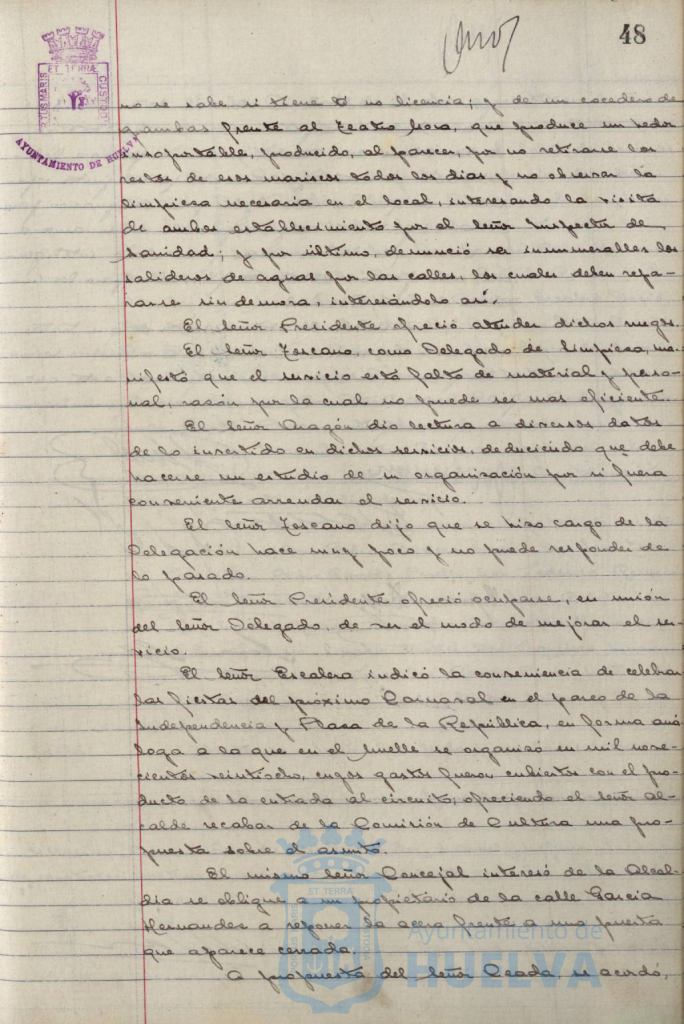 48
ET TERRÆ
PORTUS MARIS
CUSTODI
AYUNTAMIENTO DE HUELVA
no se sabe si tiene o no licencia; y de un cocedero de
gambas frente al Teatro Mora, que produce un hedor
insoportable, producido, al parecer, por no retirarse los
restos de esos mariscos todos los dias y no observar la
limpieza necesaria en el local, interesando la visita
de ambos establecimiento por el Señor Inspector de
Sanidad; y por último, denunció ser innumerables los
salideros de aguas por las calles, los cuales deben repa-
rarse sin demora, interesándolo así.
El Señor Presidente ofreció atender dichos ruegos.
El Señor Toscano, como Delegado de Limpieza, ma-
nifestó que el servicio está falto de material y perso-
nal, razón por la cual no puede ser mas eficiente.
El Señor Aragón dio lectura a diversos datos
de lo invertido en dichos servicios, deduciendo que debe
hacerse un estudio de su organización por si fuera
conveniente arrendar el servicio.
El Señor Toscano dijo que se hizo cargo de la
Delegación hace muy poco y no puede responder de
lo pasado.
El Señor Presidente ofreció ocuparse, en unión
del Señor Delegado, de ver el modo de mejorar el ser-
vicio.
El Señor Escalera indicó la conveniencia de celebrar
las fiestas del próximo Carnaval en el paseo de la
Independencia y Plaza de la República, en forma aná-
loga a la que en el Muelle se organizó en mil nove-
cientos veintiocho, cuyos gastos fueron cubiertos con el pro-
ducto de la entrada al circuito; ofreciendo el Señor Al-
calde recabar de la Comisión de Cultura una pro-
puesta sobre el asunto.
El mismo Señor Concejal interesó de la Alcal-
día se obligue a un propietario de la calle García
Hernandez a reponer la acera frente a una puerta
que aparece cerrada.
A propuesta del Señor Ceada, se acordó,
Ayuntamiento de
HUELVA